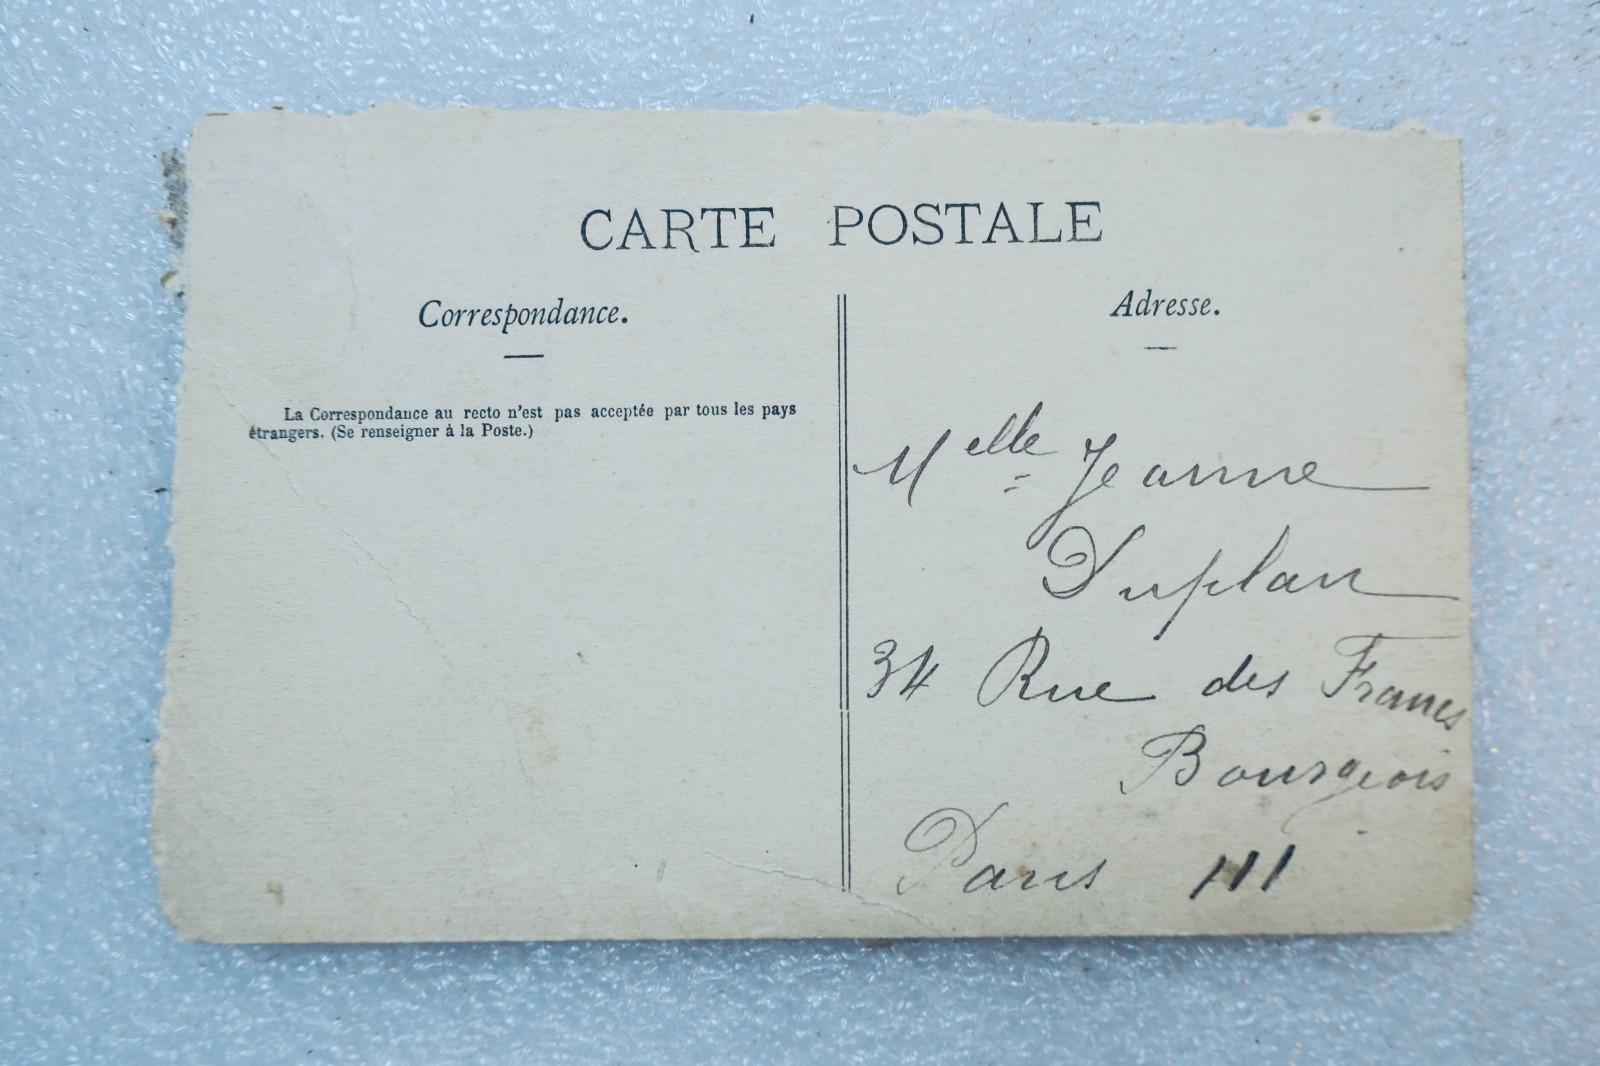 CARTE POSTALE
Correspondance.
La Correspondance au recto n'est pas acceptée par tous les pays
étrangers. (Se renseigner à la Poste.)
Adresse.
Melle Jeanne
Duplan
34 Rue des Francs
Bourgeois
Paris III